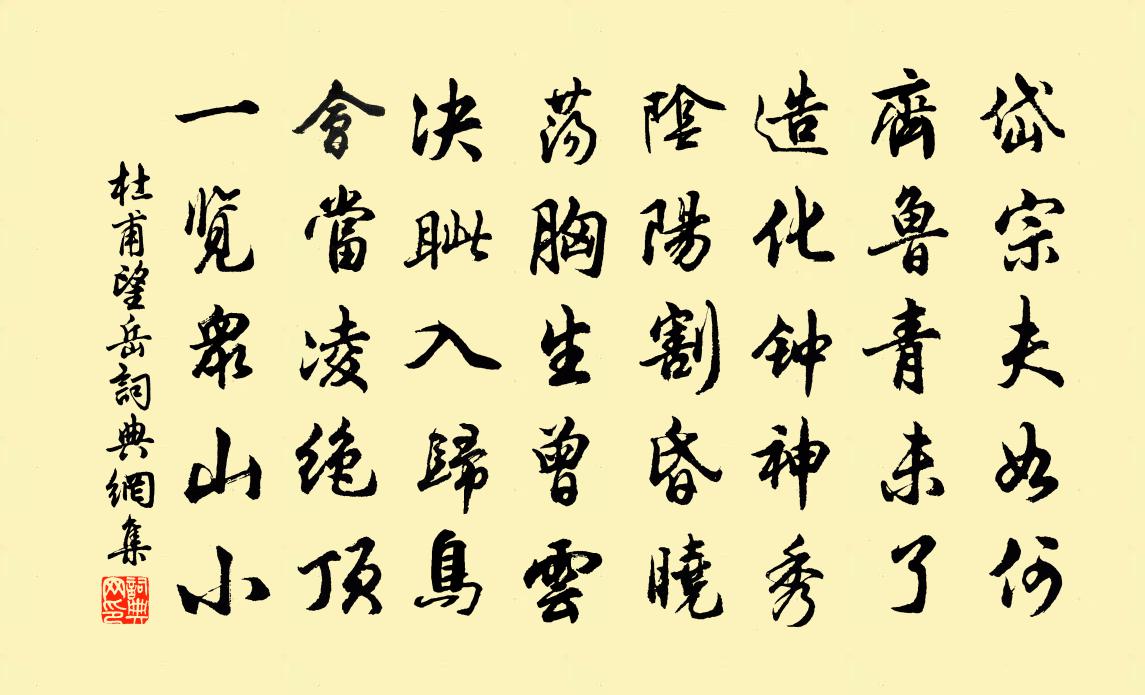 岱宗夫如何
齊魯青未了
造化钟神秀
陰陽割昏曉
荡胸生曾雲
决眦入歸鳥
會當凌绝顶
一览眾山小
杜甫望岳詞典網集
詞典網印